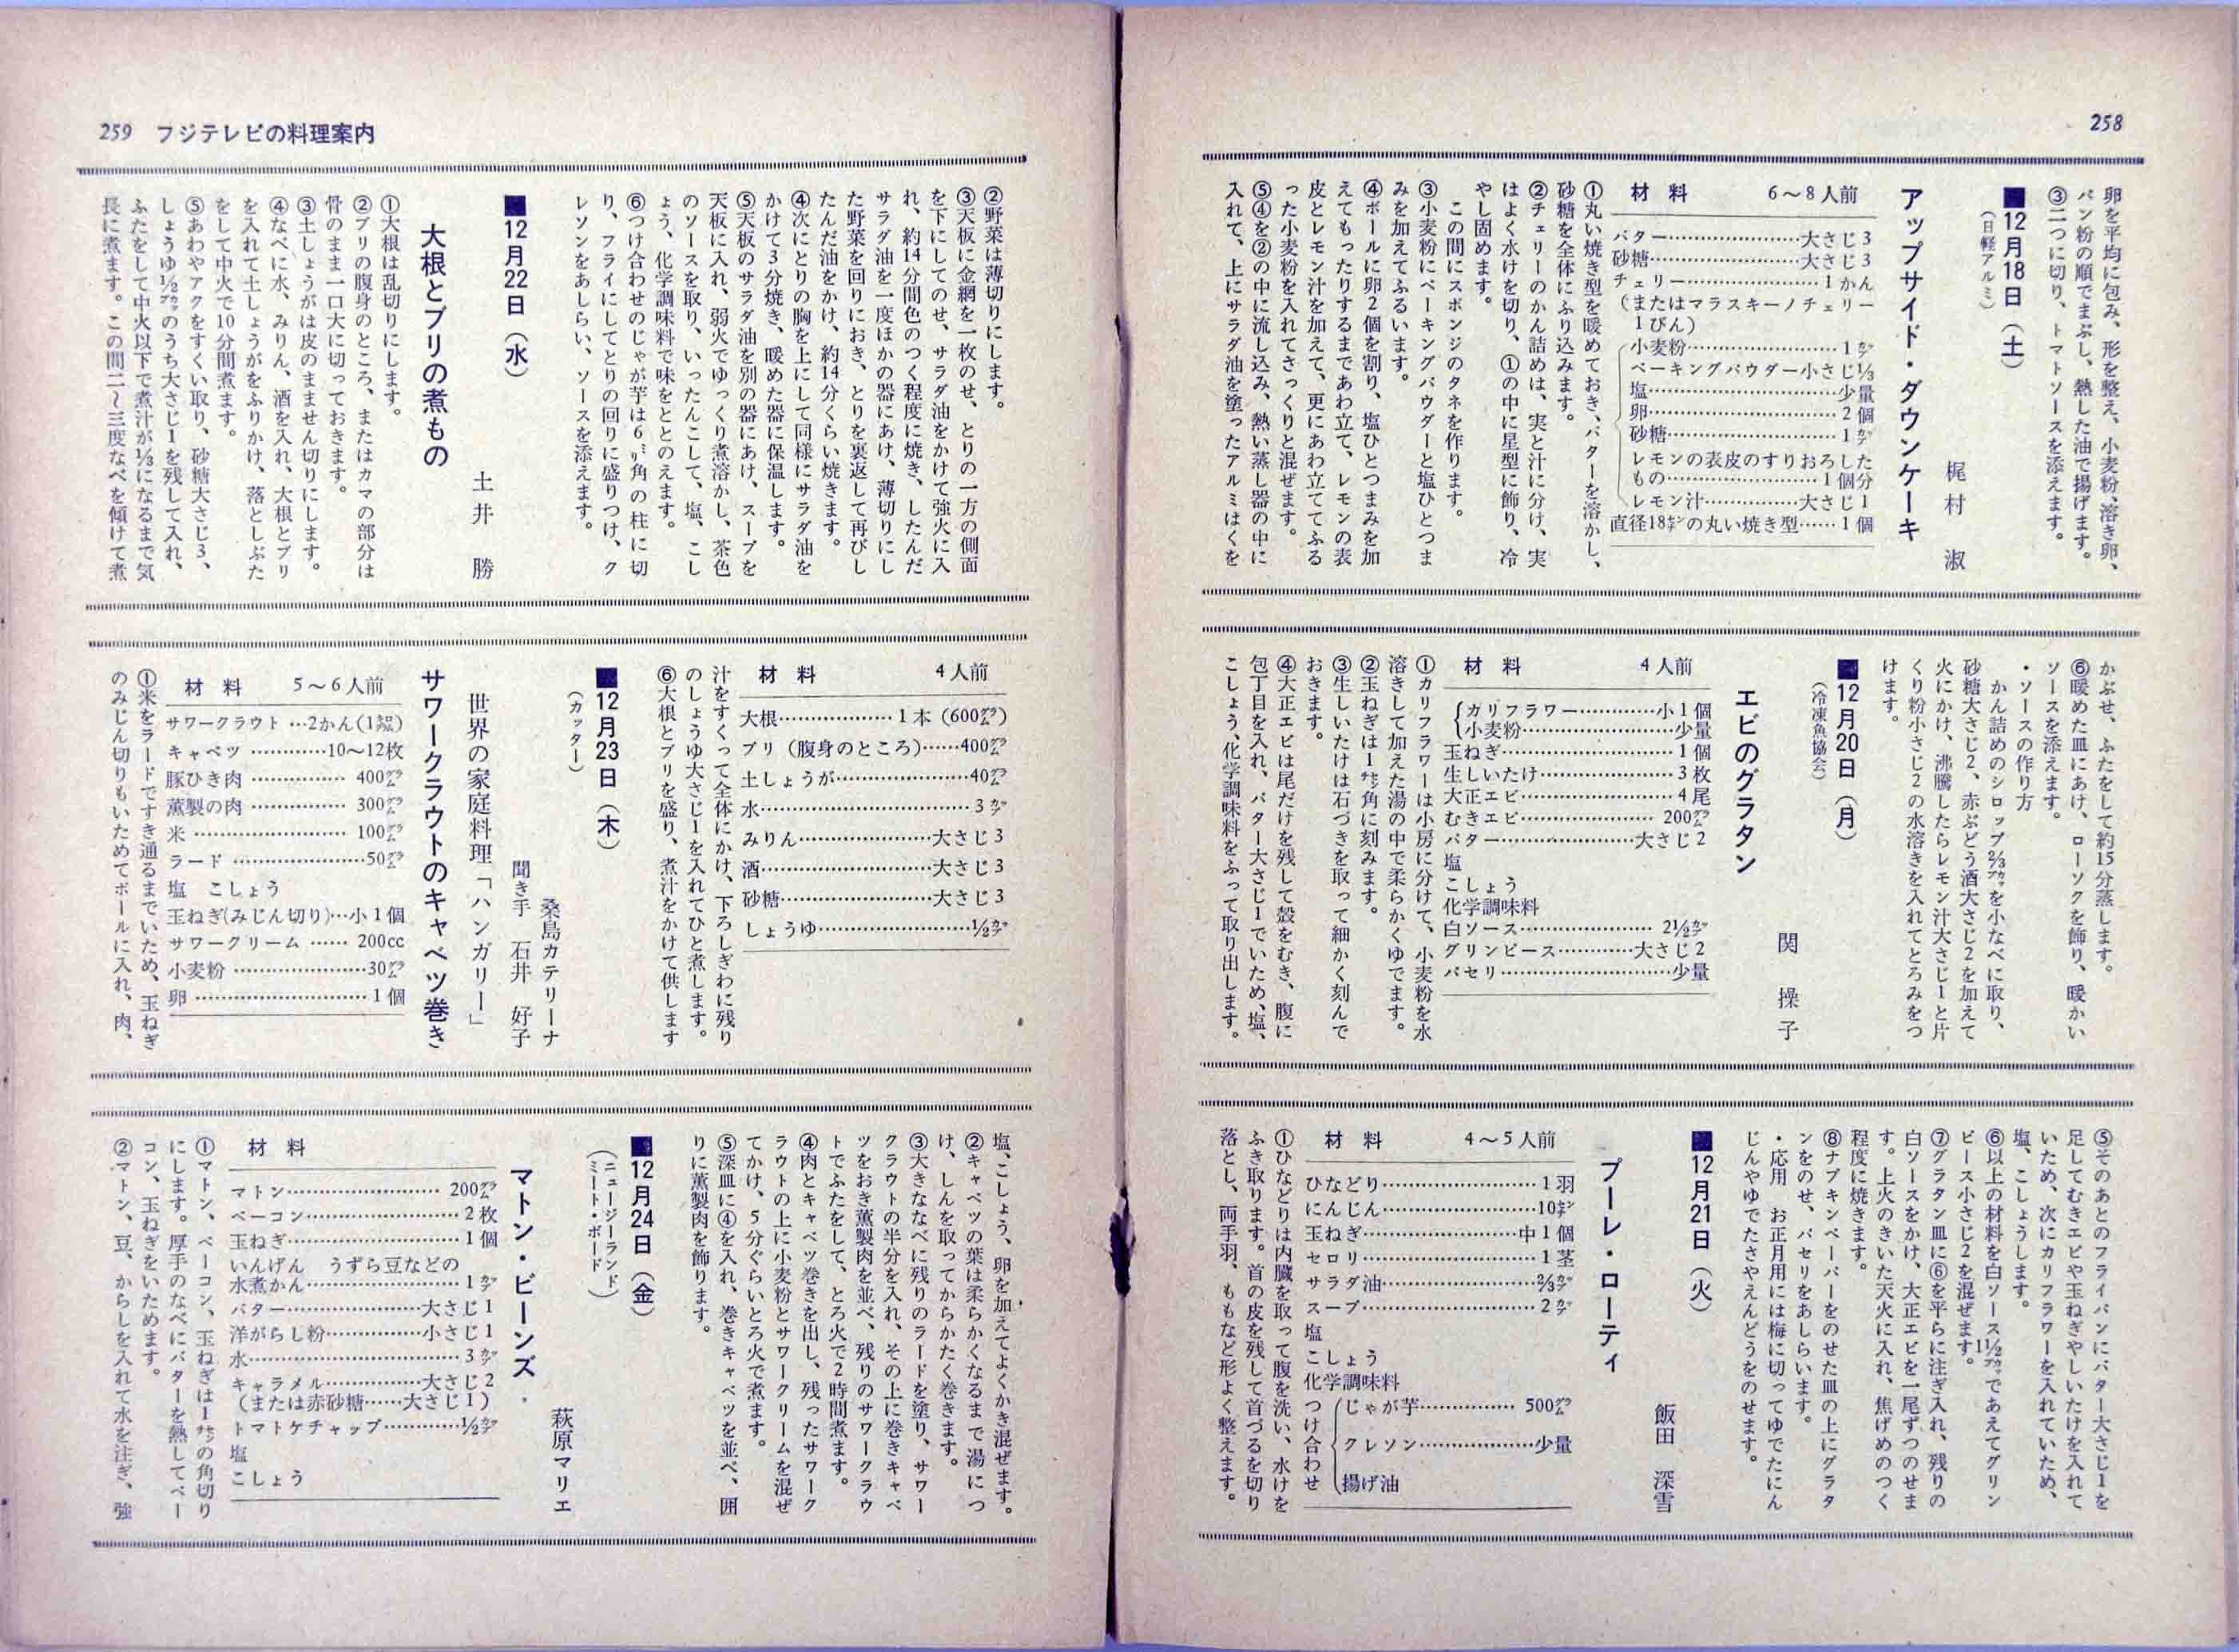 258
卵を平均に包み、形を整え、小麦粉、溶き卵、
パン粉の順でまぶし、熱した油で揚げます。
③二つに切り、トマトソースを添えます。
■12月18日(土)
(日軽アルミ)
梶村 淑
アップサイド・ダウンケーキ
材料 6〜8人前
バター……………大さじ3
砂糖……………大さじ3
チェリー……………1かん
(またはマラスキーノチェリー
1びん)
小麦粉……………1カップ
ベーキングパウダー小さじ1/3
塩……………少量
卵……………2個
砂糖……………1カップ
レモンの表皮のすりおろした
もの……………1個分
レモン汁……………大さじ1
直径18センチの丸い焼き型……1個
①丸い焼き型を暖めておき、バターを溶かし、
砂糖を全体にふり込みます。
②チェリーのかん詰めは、実と汁に分け、実
はよく水けを切り、①の中に星型に飾り、冷
やし固めます。
この間にスポンジのタネを作ります。
③小麦粉にベーキングパウダーと塩ひとつま
みを加えてふるいます。
④ボールに卵2個を割り、塩ひとつまみを加
えてもったりするまであわ立て、レモンの表
皮とレモン汁を加えて、更にあわ立ててふる
った小麦粉を入れてさっくりと混ぜます。
⑤④を②の中に流し込み、熱い蒸し器の中に
入れて、上にサラダ油を塗ったアルミはくを
かぶせ、ふたをして約15分蒸します。
⑥暖めた皿にあけ、ローソクを飾り、暖かい
ソースを添えます。
・ソースの作り方
かん詰めのシロップ2/3カップを小なべに取り、
砂糖大さじ2、赤ぶどう酒大さじ2を加えて
火にかけ、沸騰したらレモン汁大さじ1と片
くり粉小さじ2の水溶きを入れてとろみをつ
けます。
■12月20日(月)
(冷凍魚協会)
関 操子
エビのグラタン
材料 4人前
カリフラワー…………小1個
小麦粉……………少量
玉ねぎ……………1個
生しいたけ……………3枚
大正エビ……………4尾
むきエビ……………200グラム
バター……………大さじ2
塩
こしょう
化学調味料
白ソース……………2 1/2カップ
グリンピース…………大さじ2
パセリ……………少量
①カリフラワーは小房に分けて、小麦粉を水
溶きして加えた湯の中で柔らかくゆでます。
②玉ねぎは1センチ角に刻みます。
③生しいたけは石づきを取って細かく刻んで
おきます。
④大正エビは尾だけを残して殻をむき、腹に
包丁目を入れ、バター大さじ1でいため、塩、
こしょう、化学調味料をふって取り出します。
⑤そのあとのフライパンにバター大さじ1を
足してむきエビや玉ねぎやしいたけを入れて
いため、次にカリフラワーを入れていため、
塩、こしょうします。
⑥以上の材料を白ソース1 1/2カップであえてグリン
ピース小さじ2を混ぜます。
⑦グラタン皿に⑥を平らに注ぎ入れ、残りの
白ソースをかけ、大正エビを一尾ずつのせま
す。上火のきいた天火に入れ、焦げめのつく
程度に焼きます。
⑧ナプキンペーパーをのせた皿の上にグラタ
ンをのせ、パセリをあしらいます。
・応用 お正月用には梅に切ってゆでたにん
じんやゆでたさやえんどうをのせます。
■12月21日(火)
飯田 深雪
プーレ・ローティ
材料 4〜5人前
ひなどり……………1羽
にんじん……………10センチ
玉ねぎ……………中1個
セロリ……………1茎
サラダ油……………2/3カップ
スープ……………2カップ
塩
こしょう
化学調味料
つけ合わせ
じゃが芋……………500グラム
クレソン……………少量
揚げ油
①ひなどりは内臓を取って腹を洗い、水けを
ふき取ります。首の皮を残して首づるを切り
落とし、両手羽、ももなど形よく整えます。
259 フジテレビの料理案内
②野菜は薄切りにします。
③天板に金網を一枚のせ、とりの一方の側面
を下にしてのせ、サラダ油をかけて強火に入
れ、約14分間色のつく程度に焼き、したんだ
サラダ油を一度ほかの器にあけ、薄切りにし
た野菜を回りにおき、とりを裏返して再びし
たんだ油をかけ、約14分くらい焼きます。
④次にとりの胸を上にして同様にサラダ油を
かけて3分焼き、暖めた器に保温します。
⑤天板のサラダ油を別の器にあけ、スープを
天板に入れ、弱火でゆっくり煮溶かし、茶色
のソースを取り、いったんこして、塩、こし
ょう、化学調味料で味をととのえます。
⑥つけ合わせのじゃが芋は6ミリ角の柱に切
り、フライにしてとりの回りに盛りつけ、ク
レソンをあしらい、ソースを添えます。
■12月22日(水)
土井 勝
大根とブリの煮もの
①大根は乱切りにします。
②ブリの腹身のところ、またはカマの部分は
骨のまま一口大に切っておきます。
③土しょうがは皮のまません切りにします。
④なべに水、みりん、酒を入れ、大根とブリ
を入れて土しょうがをふりかけ、落としぶた
をして中火で10分間煮ます。
⑤あわやアクをすくい取り、砂糖大さじ3、
しょうゆ1/2カップのうち大さじ1を残して入れ、
ふたをして中火以下で煮汁が1/3になるまで気
長に煮ます。この間二〜三度なべを傾けて煮
材料 4人前
大根……………1本(600グラム)
ブリ(腹身のところ)……400グラム
土しょうが……………40グラム
水……………3カップ
みりん……………大さじ3
酒……………大さじ3
砂糖……………大さじ3
しょうゆ……………1/2カップ
汁をすくって全体にかけ、下ろしぎわに残り
のしょうゆ大さじ1を入れてひと煮します。
⑥大根とブリを盛り、煮汁をかけて供します
■12月23日(木)
(カッター)
桑島カテリーナ
聞き手 石井 好子
世界の家庭料理「ハンガリー」
サワークラウトのキャベツ巻き
材料 5〜6人前
サワークラウト…2かん(1キロ缶)
キャベツ…………10〜12枚
豚ひき肉……………400グラム
薫製の肉……………300グラム
米……………100グラム
ラード……………50グラム
塩 こしょう
玉ねぎ(みじん切り)…小1個
サワークリーム……200cc
小麦粉……………30グラム
卵……………1個
①米をラードですき通るまでいため、玉ねぎ
のみじん切りもいためてボールに入れ、肉、
塩、こしょう、卵を加えてよくかき混ぜます。
②キャベツの葉は柔らかくなるまで湯につ
け、しんを取ってからかたく巻きます。
③大きななべに残りのラードを塗り、サワー
クラウトの半分を入れ、その上に巻きキャベ
ツをおき薫製肉を並べ、残りのサワークラウ
トでふたをして、とろ火で2時間煮ます。
④肉とキャベツ巻きを出し、残ったサワーク
ラウトの上に小麦粉とサワークリームを混ぜ
てかけ、5分ぐらいとろ火で煮ます。
⑤深皿に④を入れ、巻きキャベツを並べ、囲
りに薫製肉を飾ります。
■12月24日(金)
(ニュージーランド)
(ミート・ボード)
萩原マリエ
マトン・ビーンズ
材料
マトン……………200グラム
ベーコン……………2枚
玉ねぎ……………1個
いんげん うずら豆などの
水煮かん……………1カップ
バター……………大さじ1
洋がらし粉……………小さじ1
水……………3カップ
キャラメル……………大さじ2
(または赤砂糖……大さじ1)
トマトケチャップ…………1/2カップ
塩
こしょう
①マトン、ベーコン、玉ねぎは1センチの角切り
にします。厚手のなべにバターを熱してベー
コン、玉ねぎをいためます。
②マトン、豆、からしを入れて水を注ぎ、強